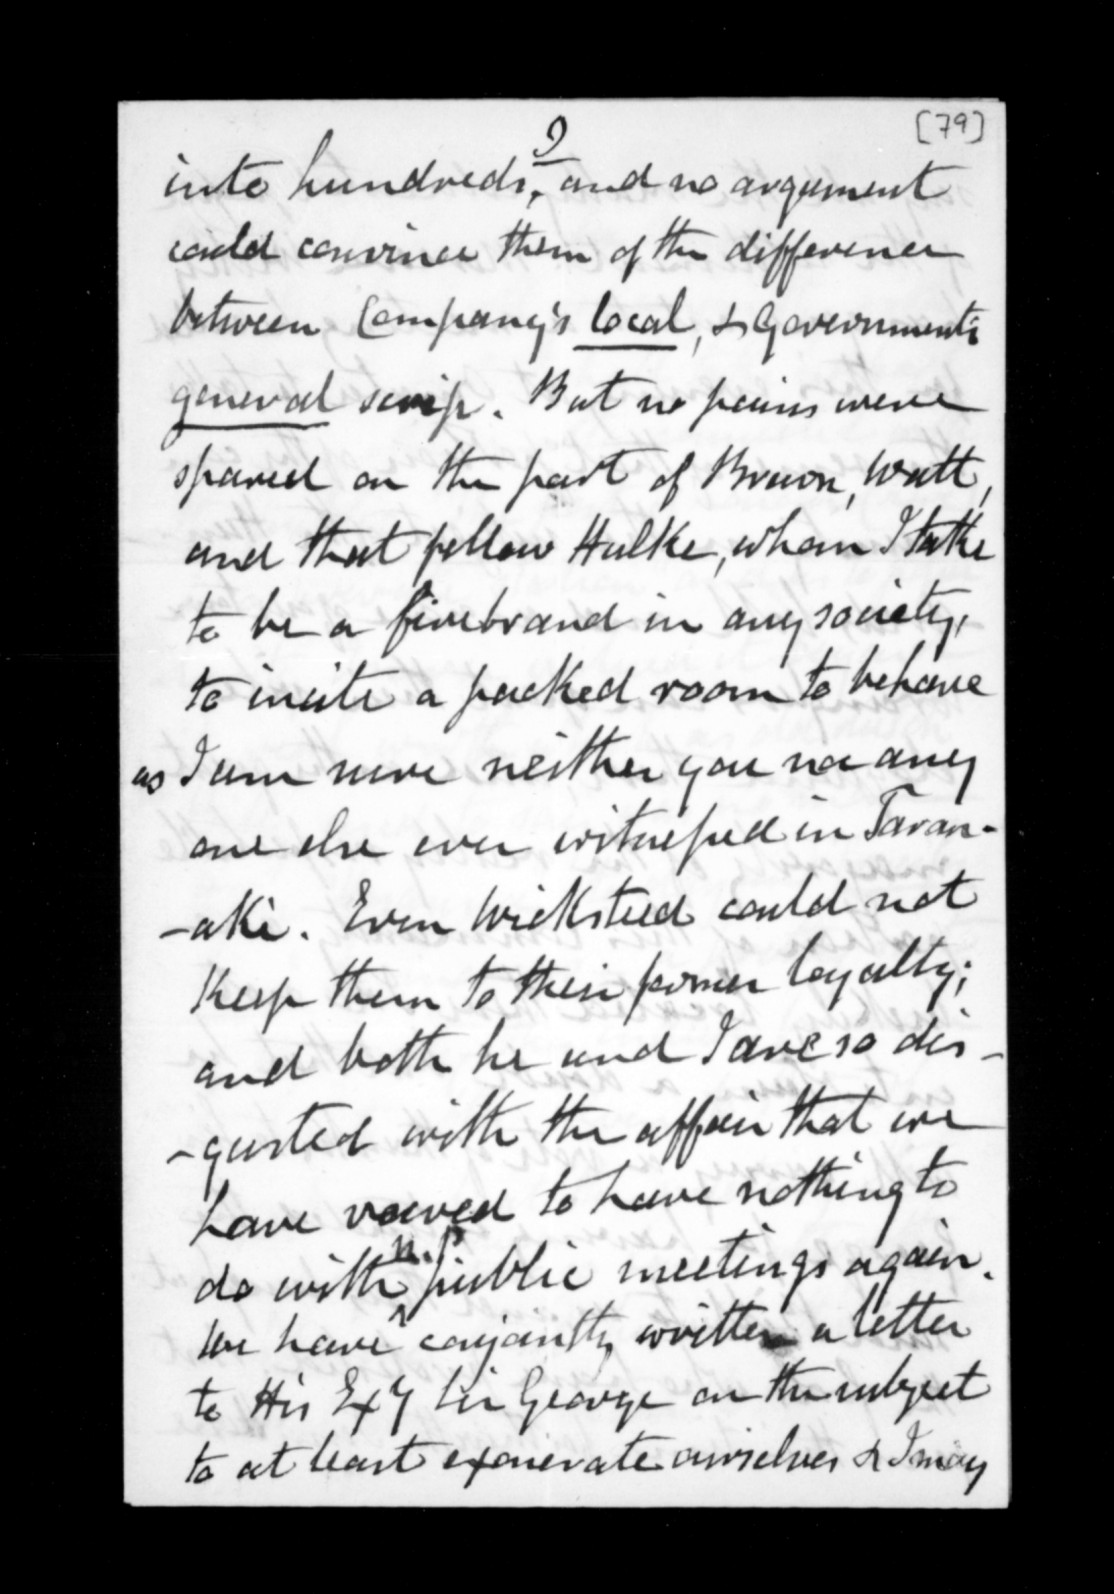 [79]
9
into hundreds, and no argument
could convince them of the difference
between Company's local, & Governments
general scrip. But no pains were
spared on the part of Brown, Watt,
and that fellow Hulke, whom I take
to be a firebrand in any society,
to incite a packed room to behave
as I am sure neither you nor any
one else ever witnessed in Taran-
-aki. Even Wicksteed could not
keep them to their former loyalty;
and both he and I are so dis-
-gusted with the affair that we
have vowed to have nothing to
do with N.P. public meetings again.
We have conjointly written a letter
to His Exy Sir George on the subject
to at least exonerate ourselves & I may